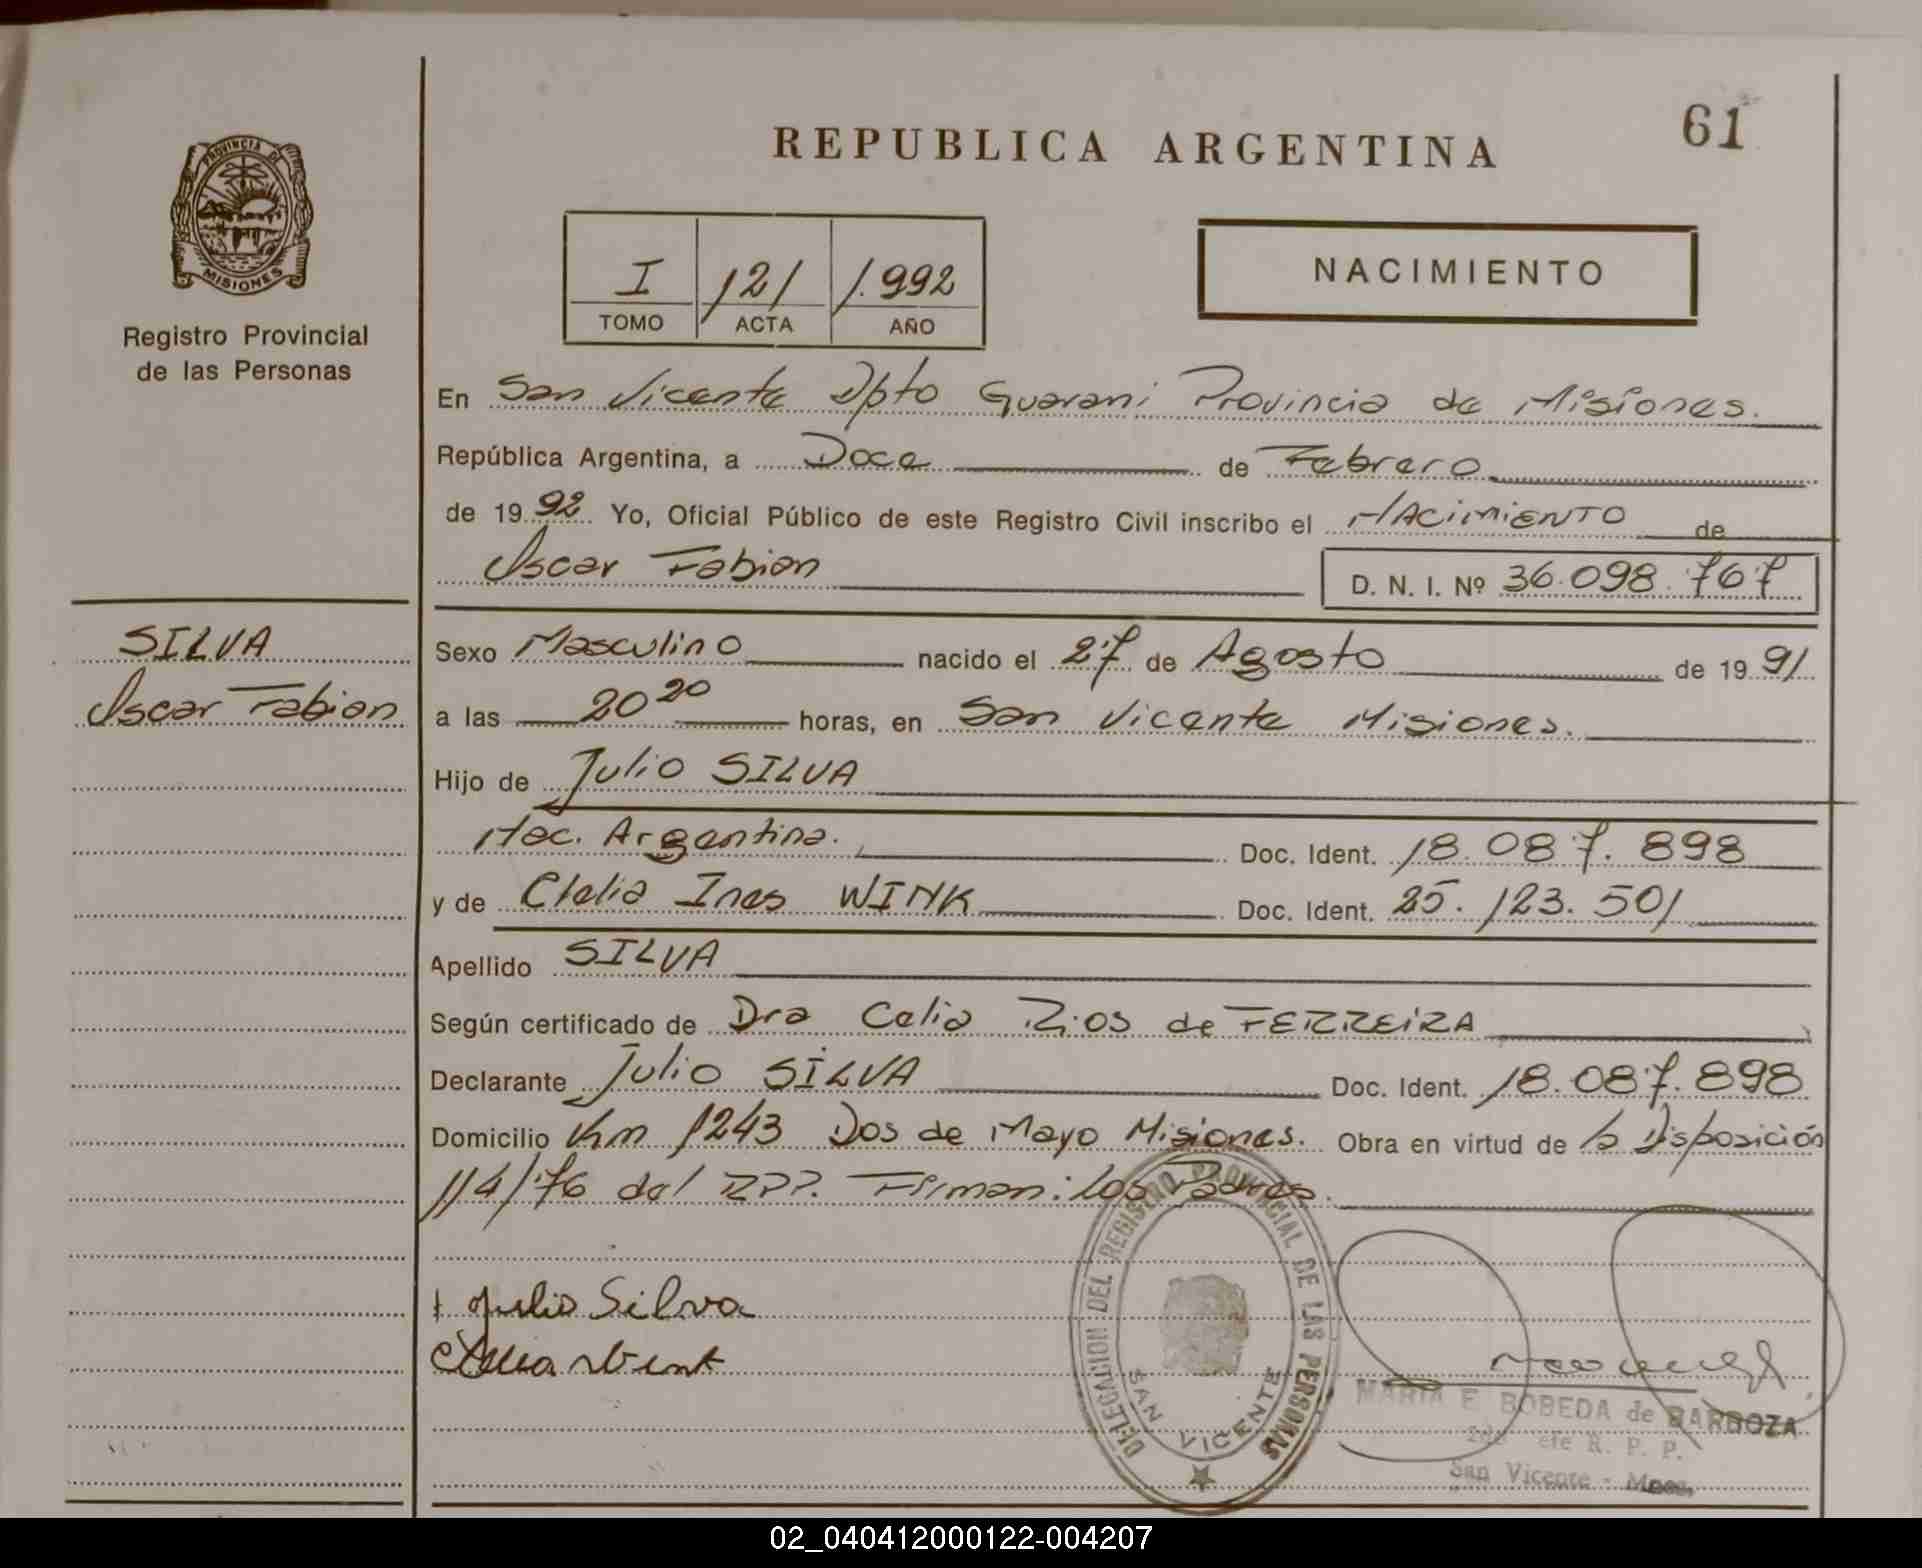 REPUBLICA ARGENTINA
61
PROVINCIA DE
MISIONES
Registro Provincial
de las Personas
I
121
1.992
TOMO
ACTA
AÑO
NACIMIENTO
En San Vicente Dpto Guarani Provincia de Misiones.
República Argentina, a Doce de Febrero
de 1992 Yo, Oficial Público de este Registro Civil inscribo el NACIMIENTO de
Oscar Fabian
D. N. I. Nº 36.098.767
SILVA
Oscar Fabian
Sexo Masculino nacido el 27 de Agosto de 1991
a las 20 20 horas, en San Vicente Misiones.
Hijo de Julio SILVA
Nac. Argentina. Doc. Ident. 18.087.898
y de Clelia Ines WINK Doc. Ident. 25.123.501
Apellido SILVA
Según certificado de Dra Celia Rios de FERREIRA
Declarante Julio SILVA Doc. Ident. 18.087.898
Domicilio Km 1243 Dos de Mayo Misiones. Obra en virtud de la Disposición
114/76 del RPP. Firman: los Padres.
Julio Silva
DELEGACION DEL REGISTRO PROVINCIAL DE LAS PERSONAS
SAN VICENTE
MARIA E BOBEDA de BARBOZA
R. P. P.
San Vicente - Mnes.
02_040412000122-004207